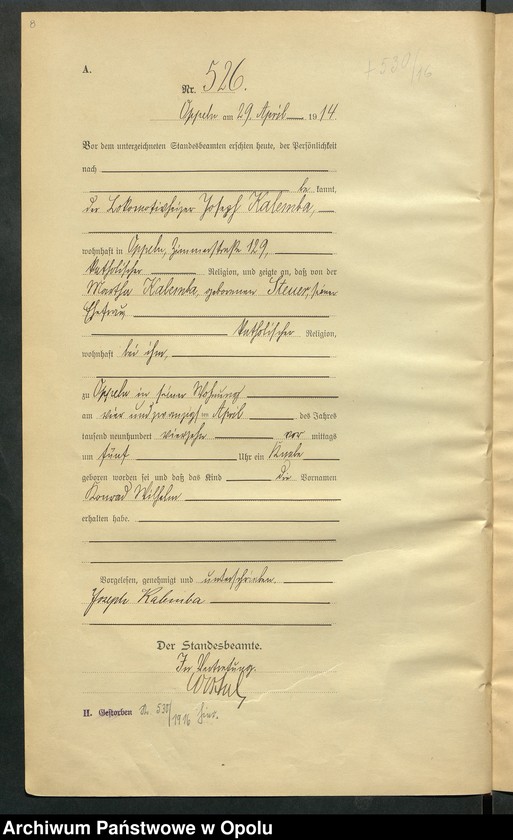 B
A.
† 530/16
Nr. 526.
Oppeln am 29. April 1914.
Vor dem unterzeichneten Standesbeamten erschien heute, der Persönlichkeit
nach
be kannt,
der Lokomotivheizer Joseph Kalemba,
wohnhaft in Oppeln, Zimmerstraße 129,
katholischer Religion, und zeigte an, daß von der
Martha Kalemba, geborenen Steuer, seiner
Ehefrau
katholischer Religion,
wohnhaft bei ihm,
zu Oppeln in seiner Wohnung
am vier und zwanzigsten April des Jahres
tausend neunhundert vierzehn vor mittags
um fünf Uhr ein Knabe
geboren worden sei und daß das Kind die Vornamen
Konrad Wilhelm
erhalten habe.
Vorgelesen, genehmigt und unterschrieben.
Joseph Kalemba
Der Standesbeamte.
In Vertretung.
H. Gestorben Nr. 530/1916 hier.
Archiwum Państwowe w Opolu